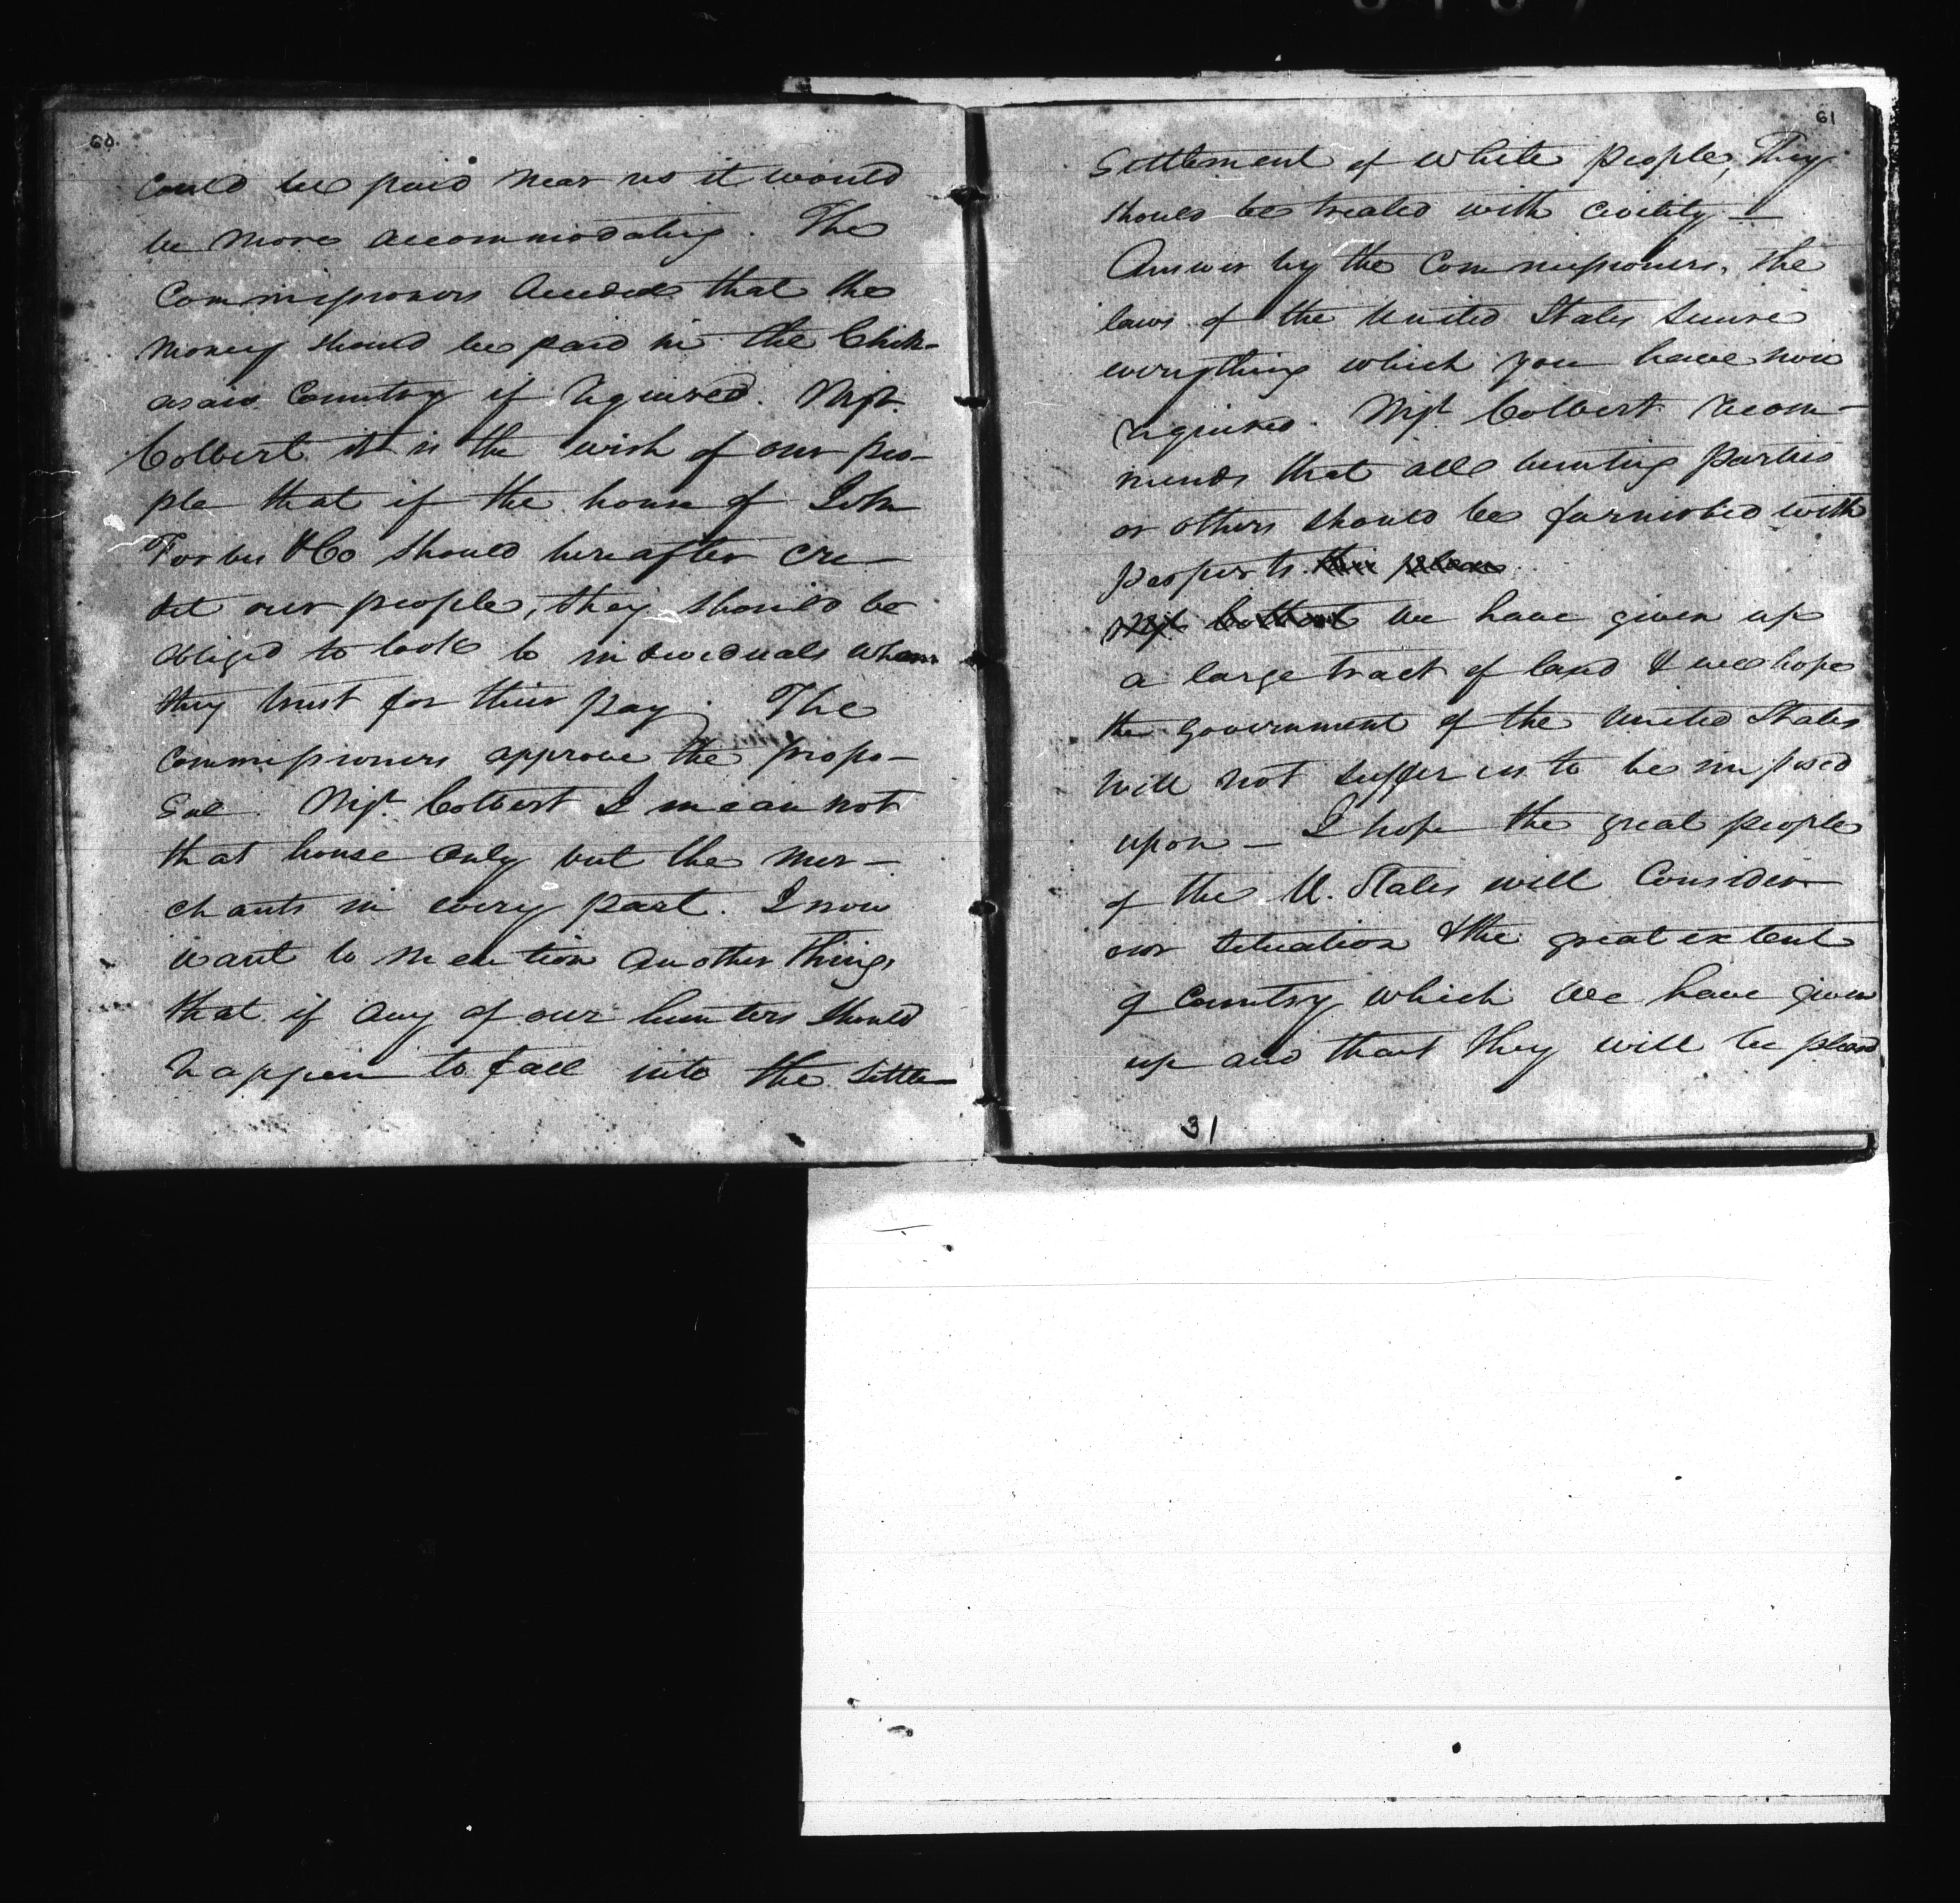 60.
could be paid near us it would
be more accommodating. The
Commissioners decided that the
money should be paid in the Chik-
asaw Country if required. Majr.
Colbert it is the wish of our peo-
ple that if the house of John
Forbes & Co should hereafter cre-
dit our people, they should be
obliged to look to individuals whom
they trust for their pay. The
Commissioners approve the propo-
sal. Majr. Colbert I mean not
that house only but the mer-
chants in every part. I now
want to mention another thing,
that if any of our hunters should
happen to fall into the settle-
61
Settlement of white people, They
should be treated with civility —
Answer by the Commissioners, the
laws of the United States secure
everything which you have now
required. Majr. Colbert recom-
mends that all hunting parties
or others should be furnished with
pasports.
Majr Colbert We have given up
a large tract of land & we hope
the government of the United States
will not suffer us to be imposed
upon — I hope the great people
of the U. States will Consider
our Situation & the great extent
of Country which we have given
up and that they will be pleased
31